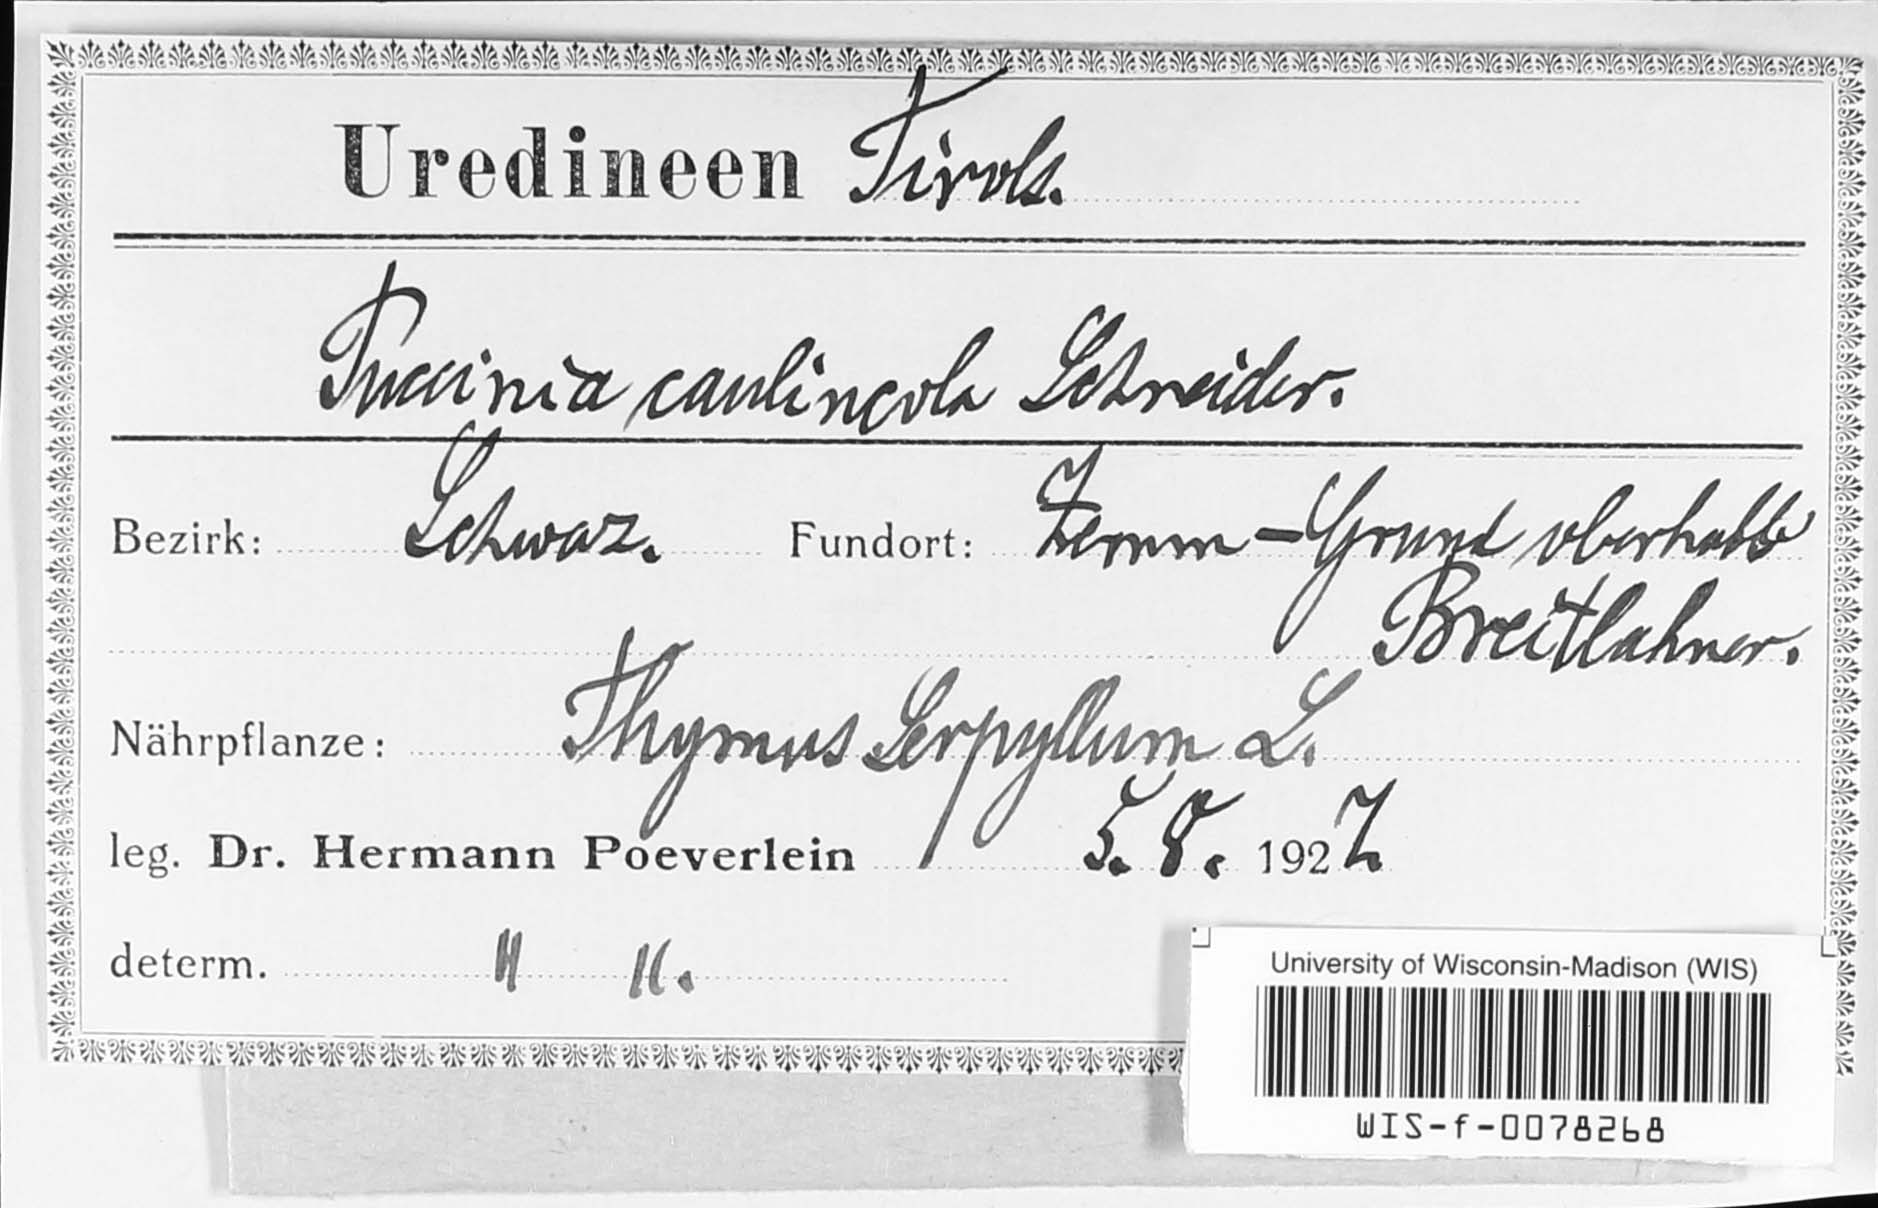 Uredineen Tirols.
Puccinia caulincola Schneider.
Bezirk: Schwaz. Fundort: Zemm-Grund oberhalb
Breitlahner.
Nährpflanze: Thymus Serpyllum L.
leg. Dr. Hermann Poeverlein 5. 8. 1927
determ. " ".
University of Wisconsin-Madison (WIS)
WIS-f-0078268